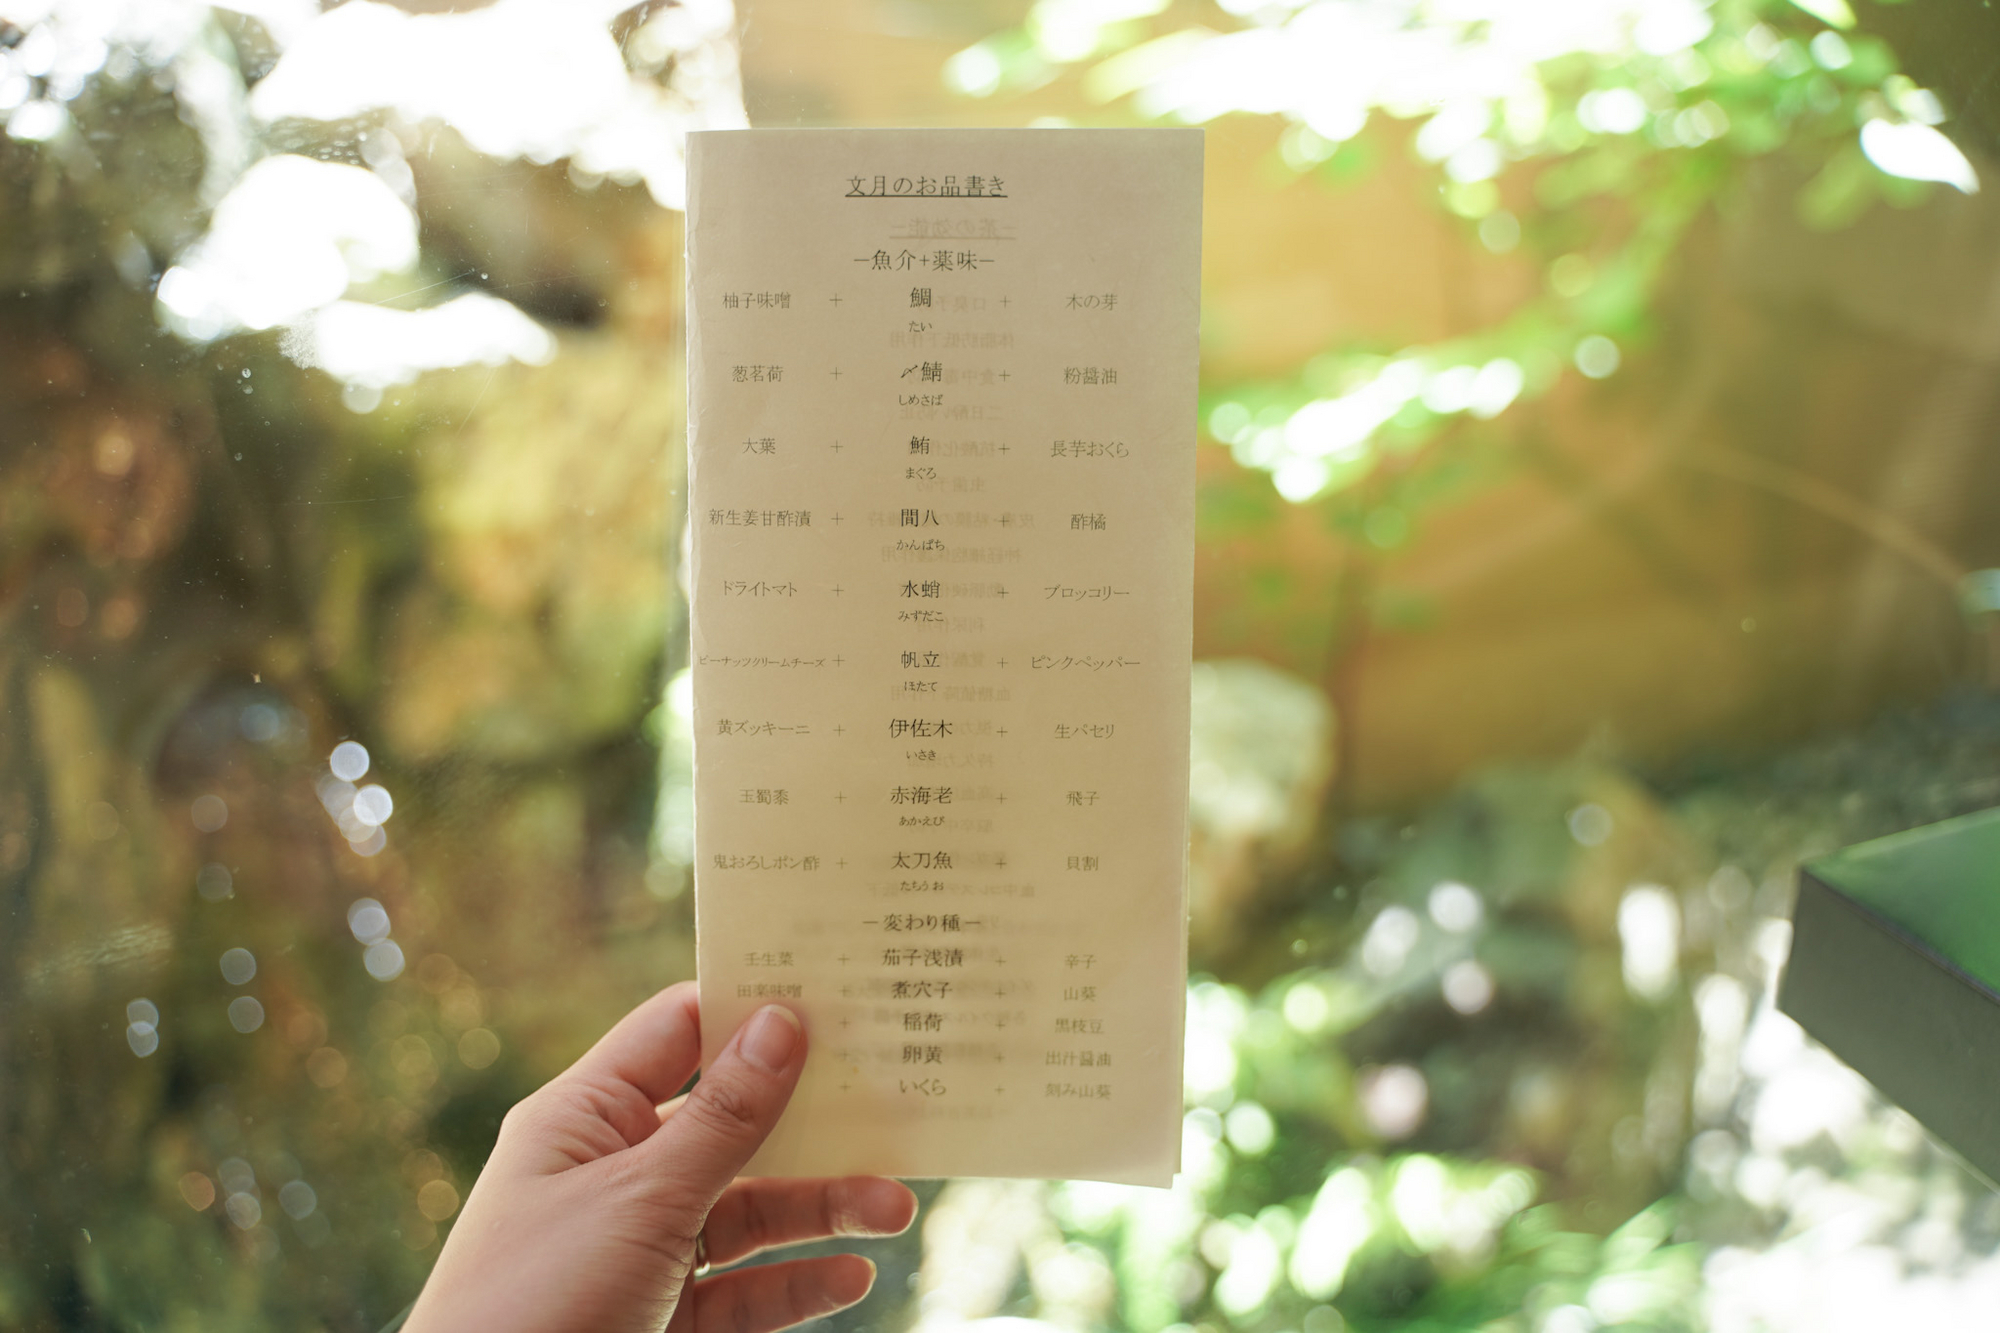 文月のお品書き
－茶の効能－
－魚介+薬味－
柚子味噌 + 鯛 + 木の芽
たい
葱茗荷 + 〆鯖 + 粉醤油
しめさば
大葉 + 鮪 + 長芋おくら
まぐろ
新生姜甘酢漬 + 間八 + 酢橘
かんぱち
ドライトマト + 水蛸 + ブロッコリー
みずだこ
ピーナッツクリームチーズ + 帆立 + ピンクペッパー
ほたて
黄ズッキーニ + 伊佐木 + 生パセリ
いさき
玉蜀黍 + 赤海老 + 飛子
あかえび
鬼おろしポン酢 + 太刀魚 + 貝割
たちうお
－変わり種－
壬生菜 + 茄子浅漬 + 辛子
田楽味噌 + 煮穴子 + 山葵
+ 稲荷 + 黒枝豆
+ 卵黄 + 出汁醤油
+ いくら + 刻み山葵